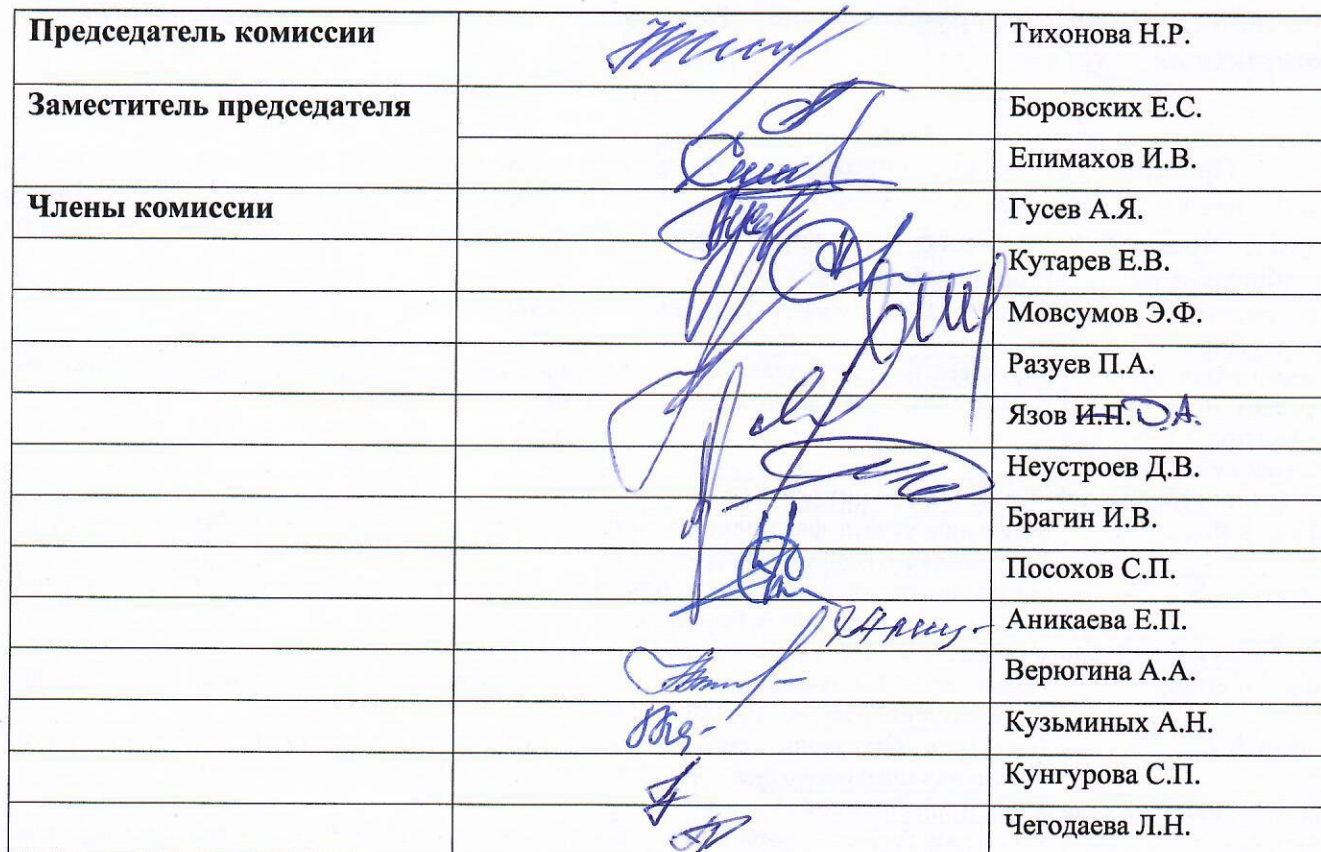 Председатель комиссии Тихонова Н.Р.
Заместитель председателя Боровских Е.С.
Епимахов И.В.
Члены комиссии Гусев А.Я.
Кутарев Е.В.
Мовсумов Э.Ф.
Разуев П.А.
Язов И.Н. Д.А.
Неустроев Д.В.
Брагин И.В.
Посохов С.П.
Аникаева Е.П.
Верюгина А.А.
Кузьминых А.Н.
Кунгурова С.П.
Чегодаева Л.Н.